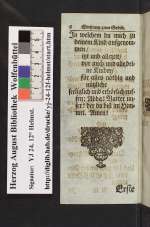 Herzog August Bibliothek Wolfenbüttel
Signatur: YJ 24. 12° Helmst.
http://diglib.hab.de/drucke/yj-24-12f-helmst/start.htm
6
In welchem du mich zu
deinem Kind aufgenom-
men/
ist und allezeit/
vor mich und alle dei-
ne Kinder/
für alles nöthig und
nützliche
hertzlich und erhörlich
ruffen: Abba! Vatter un-
ser! der du bist im Him-
mel. Amen!
Erste